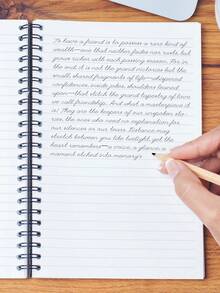 To have a friend is to possess a rare kind of
wealth—one that neither fades nor rusts, but
grows richer with each passing season. For in
the end, it is not the grand victories but the
small, shared fragments of life—whispered
confidences, inside jokes, shoulders leaned
upon—that stitch the grand tapestry of love
we call friendship. And what a masterpiece it
is! They are the keepers of our unspoken sto-
ries, the ones who need no explanation for
our silences or our tears. Distance may
stretch between you like twilight, yet the
heart remembers—a voice, a glance, a
moment etched into memory's